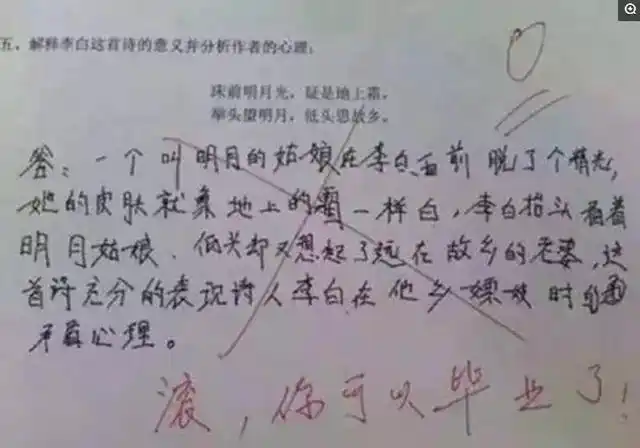 五、解释李白这首诗的意义并分析作者的心理:
床前明月光,疑是地上霜。
举头望明月,低头思故乡。
0
答:一个叫明月的姑娘在李白面前脱了个精光,
她的皮肤就象地上的霜一样白,李白抬头看着
明月姑娘、低头却又想起了远在故乡的老婆,这
首诗充分的表现诗人李白在他乡嫖妓时的
矛盾心理。
滚,你可以毕业了!